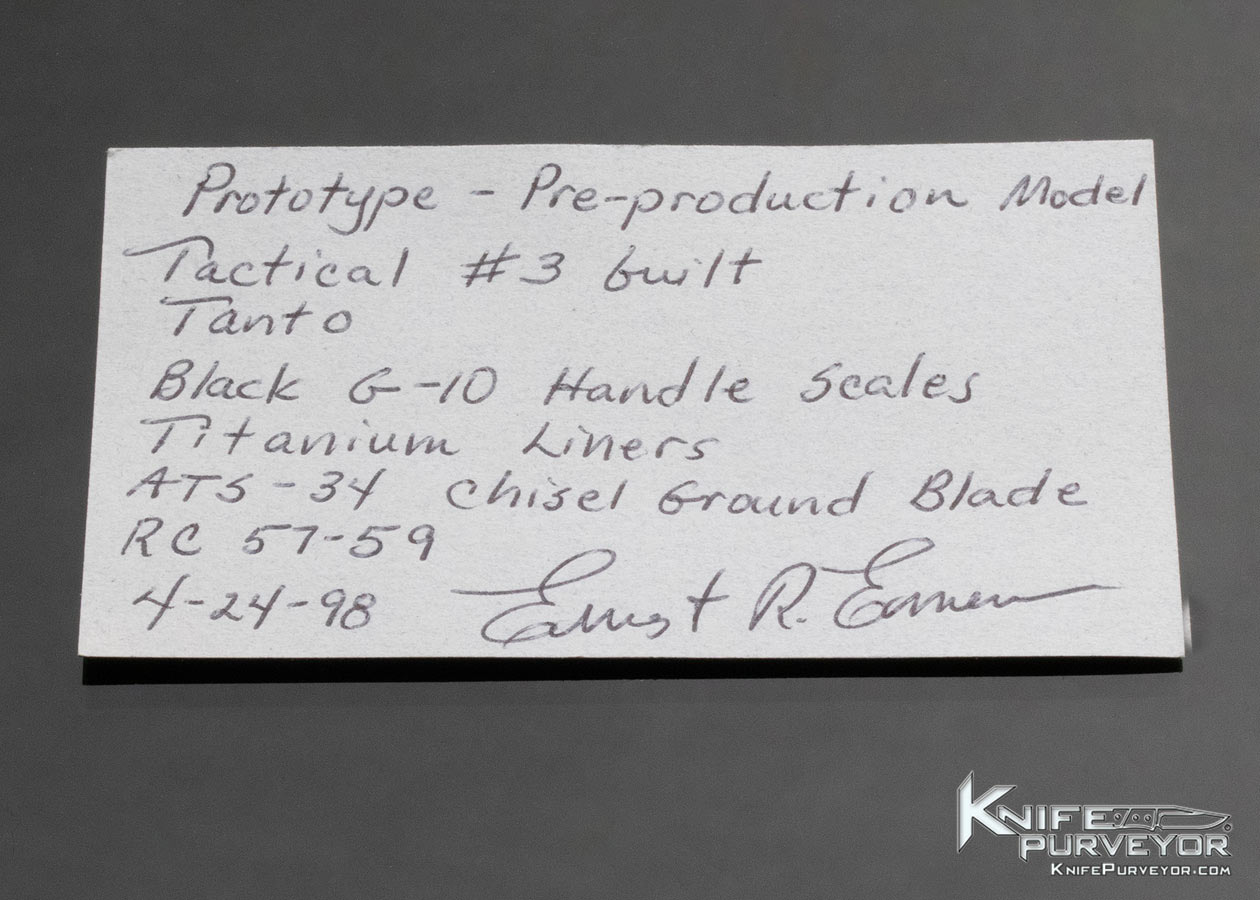 Prototype - Pre-production Model
Tactical #3 built
Tanto
Black G-10 Handle Scales
Titanium Liners
ATS-34 Chisel Ground Blade
RC 57-59
4-24-98 Ernest R. Emerson
KNIFE
PURVEYOR
KNIFEPURVEYOR.COM